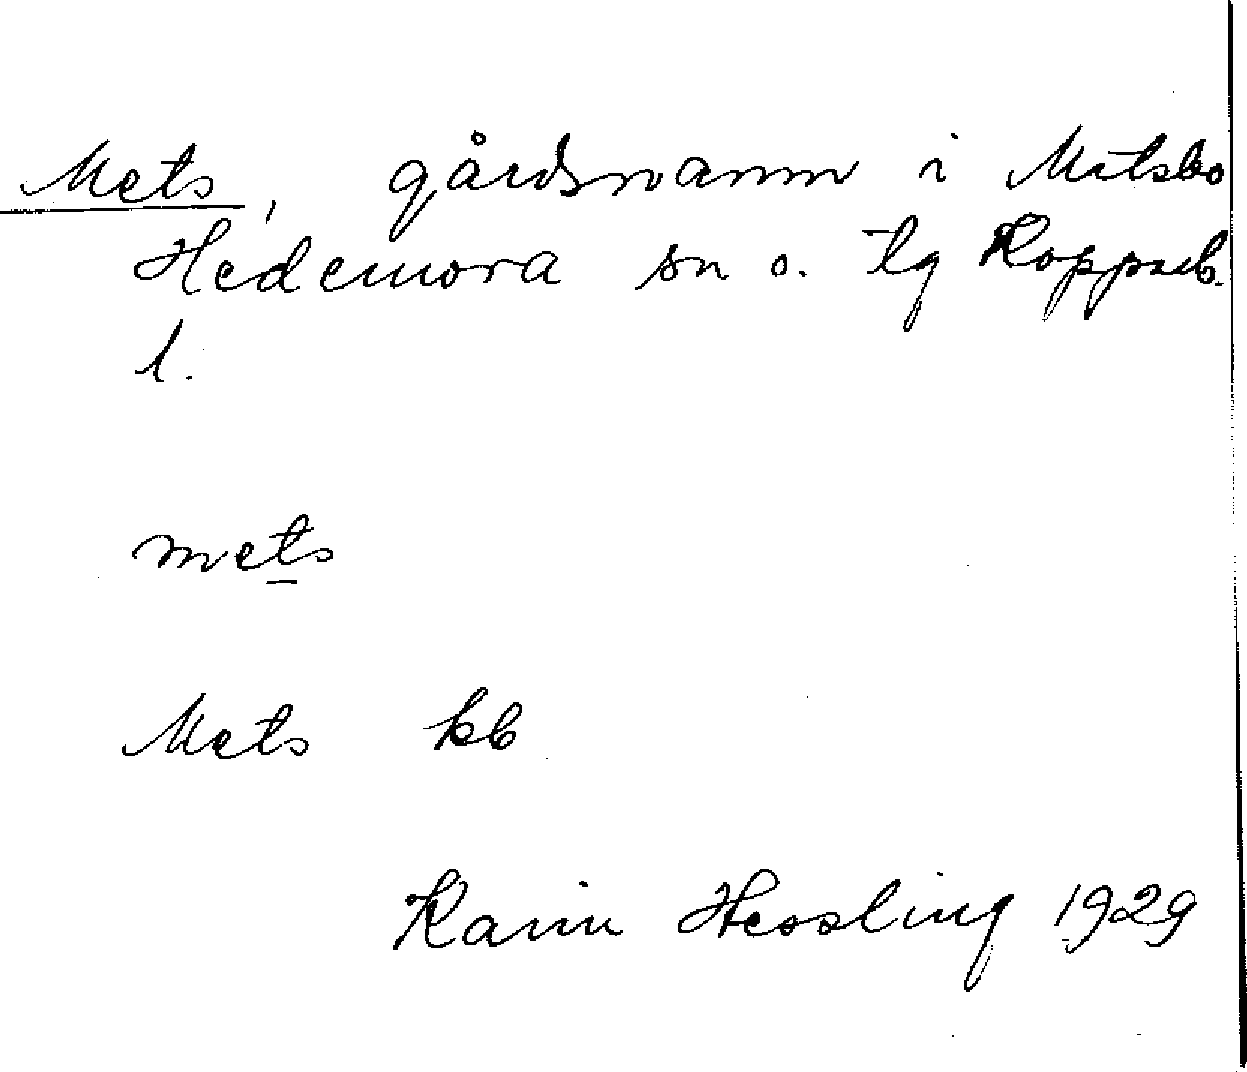 Mets, gårdsnamn i Matsbo
Hedemora sn o. tg Kopparb.
l.
mets
Mets kb
Karin Hessling 1929